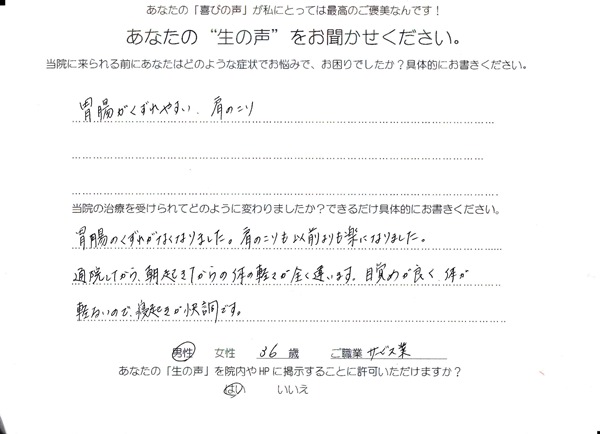 あなたの「喜びの声」が私にとっては最高のご褒美なんです！
あなたの“生の声”をお聞かせください。
当院に来られる前にあなたはどのような症状でお悩みで、お困りでしたか？具体的にお書きください。
胃腸がくずれやすい、肩のこり
当院の治療を受けられてどのように変わりましたか？できるだけ具体的にお書きください。
胃腸のくずれがなくなりました。肩のこりも以前よりも楽になりました。
通院してから、朝起きてからの体の軽さが全く違います。目覚めが良く、体が
軽いので、寝起きが快調です。
男性 女性 36 歳 ご職業 サービス業
あなたの「生の声」を院内やHPに掲示することに許可いただけますか？
はい いいえ